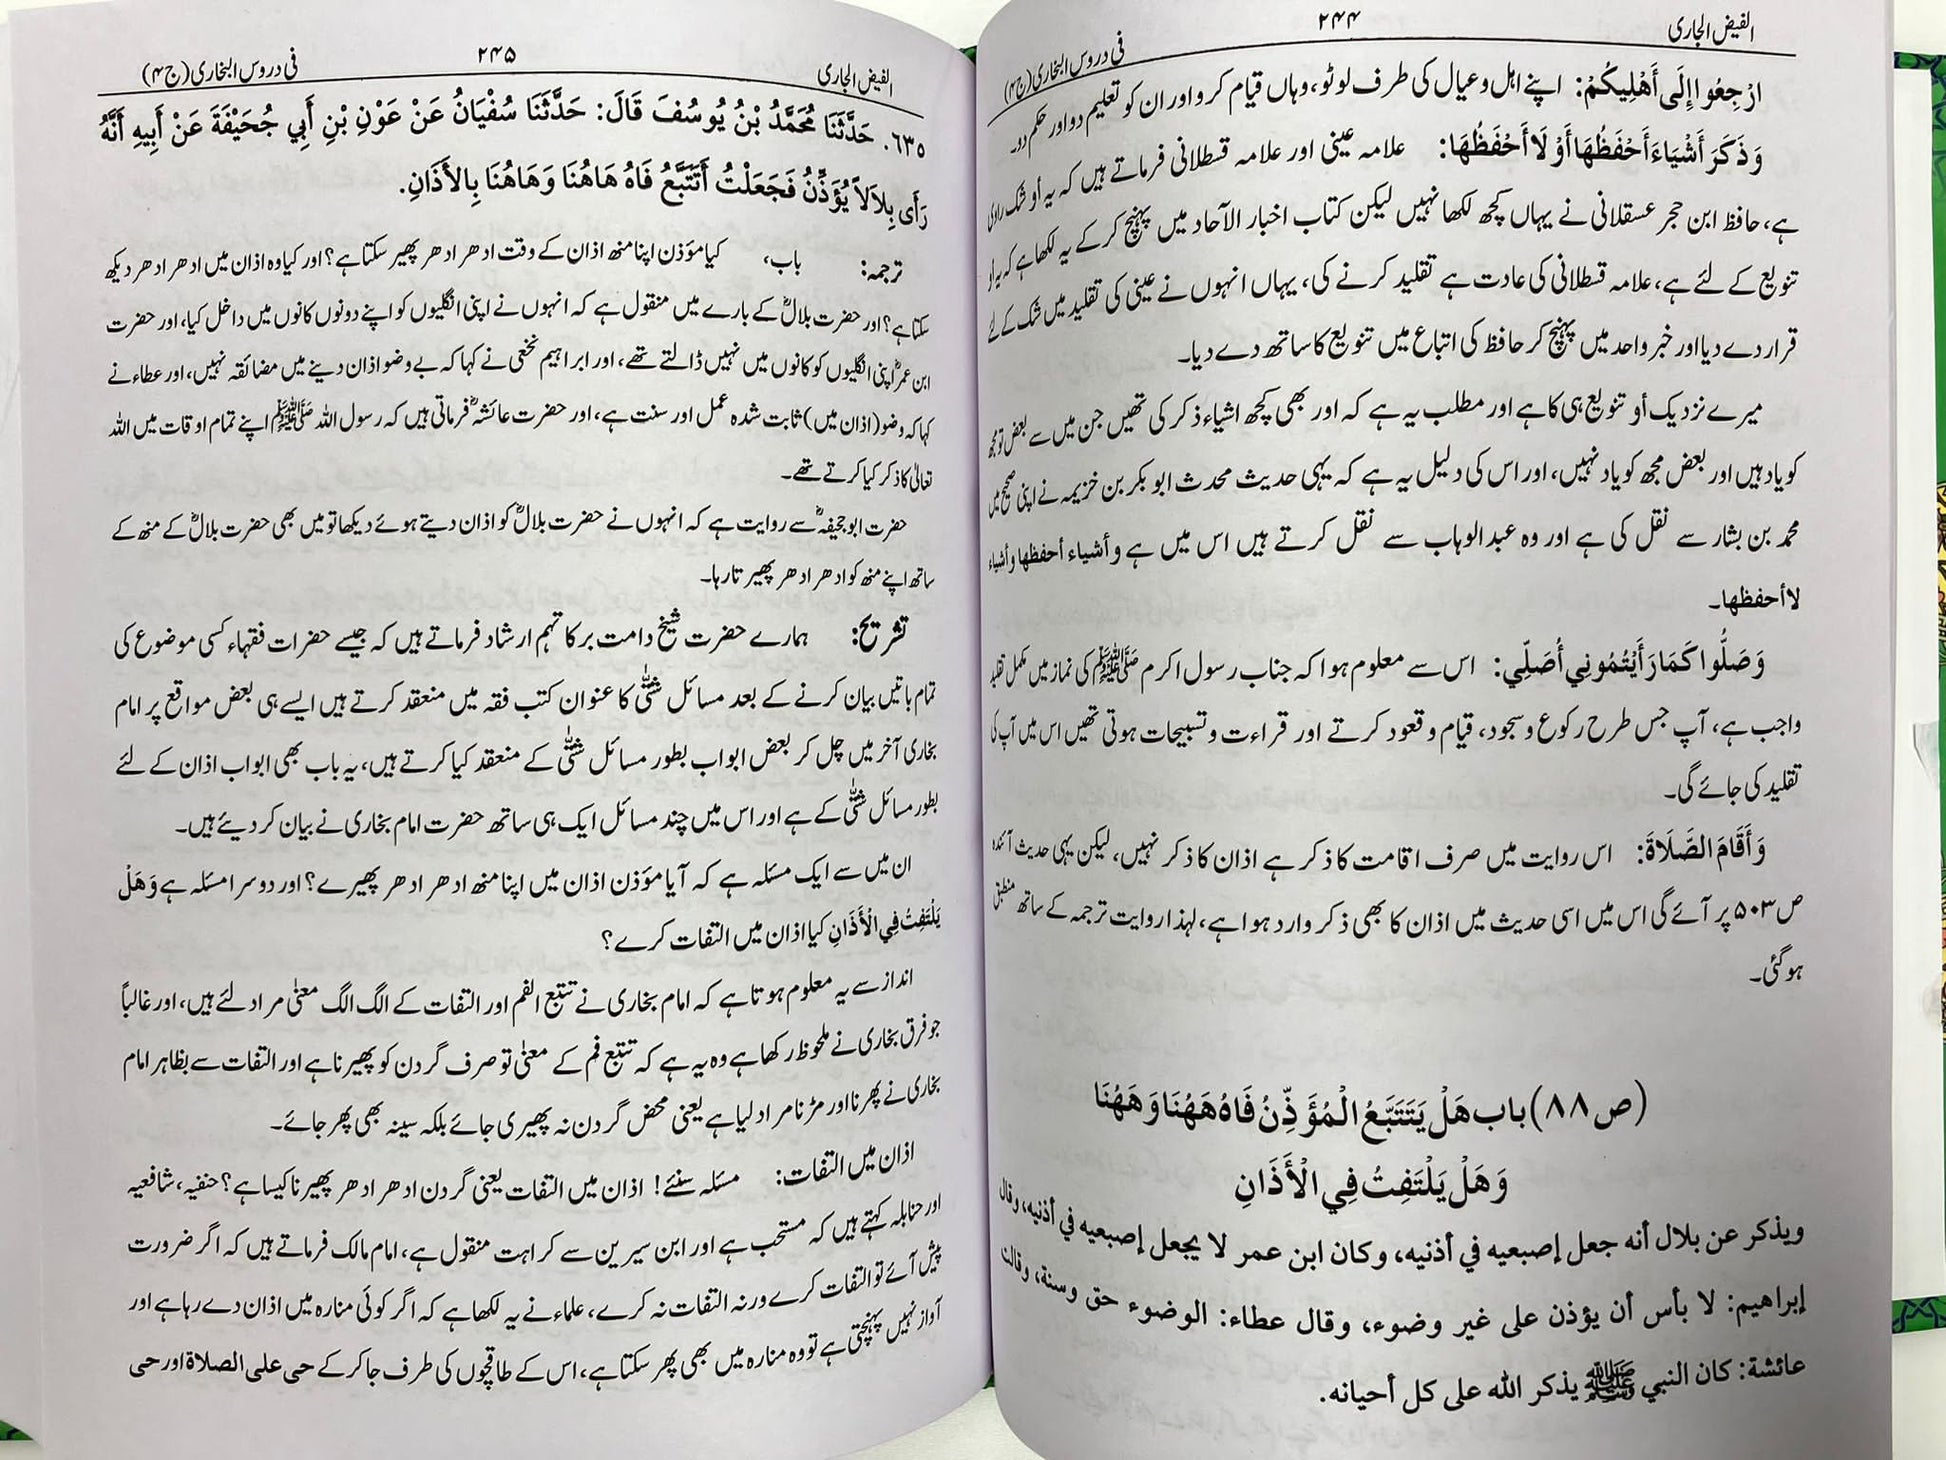 الفیض الجاری
۲۴۴
فی دروس البخاری (ج۴)
ارْجِعُوا إِلَى أَهْلِيكُمْ: اپنے اہل و عیال کی طرف لوٹو، وہاں قیام کرو اور ان کو تعلیم دو اور حکم دو۔
وَذَكَرَ أَشْيَاءَ أَحْفَظُهَا أَوْ لَا أَحْفَظُهَا: علامہ عینی اور علامہ قسطلانی فرماتے ہیں کہ یہ أو شک راوی
ہے، حافظ ابن حجر عسقلانی نے یہاں کچھ لکھا نہیں لیکن کتاب اخبار الآحاد میں پہنچ کر کے یہ لکھا ہے کہ یہ او
تنویع کے لئے ہے، علامہ قسطلانی کی عادت ہے تقلید کرنے کی، یہاں انہوں نے عینی کی تقلید میں شک کے لئے
قرار دے دیا اور خبر واحد میں پہنچ کر حافظ کی اتباع میں تنویع کا ساتھ دے دیا۔
میرے نزدیک أو تنویع ہی کا ہے اور مطلب یہ ہے کہ اور بھی کچھ اشیاء ذکر کی تھیں جن میں سے بعض تو مجھ
کو یاد ہیں اور بعض مجھ کو یاد نہیں، اور اس کی دلیل یہ ہے کہ یہی حدیث محدث ابو بکر بن خزیمہ نے اپنی صحیح میں
محمد بن بشار سے نقل کی ہے اور وہ عبد الوہاب سے نقل کرتے ہیں اس میں ہے وأشياء أحفظها وأشياء
لا أحفظها۔
وَصَلُّوا كَمَا رَأَيْتُمُونِي أُصَلِّي: اس سے معلوم ہوا کہ جناب رسول اکرم ﷺ کی نماز میں مکمل تقلید
واجب ہے، آپ جس طرح رکوع و سجود، قیام و قعود کرتے اور قراءت و تسبیحات ہوتی تھیں اس میں آپ کی
تقلید کی جائے گی۔
وَأَقَامَ الصَّلَاةَ: اس روایت میں صرف اقامت کا ذکر ہے اذان کا ذکر نہیں، لیکن یہی حدیث آئندہ
ص ۵۰۳ پر آئے گی اس میں اسی حدیث میں اذان کا بھی ذکر وارد ہوا ہے، لہذا روایت ترجمہ کے ساتھ منطبق
ہوگئی۔
(ص ۸۸) باب هَلْ يَتَتَبَّعُ الْمُؤَذِّنُ فَاهُ هَهُنَا وَهَهُنَا
وَهَلْ يَلْتَفِتُ فِي الْأَذَانِ
ويذكر عن بلال أنه جعل إصبعيه في أذنيه، وكان ابن عمر لا يجعل إصبعيه في أذنيه، وقال
إبراهيم: لا بأس أن يؤذن على غير وضوء، وقال عطاء: الوضوء حق وسنة، وقالت
عائشة: كان النبي ﷺ يذكر الله على كل أحيانه.
الفیض الجاری
۲۴۵
فی دروس البخاری (ج۴)
٦٣٥. حَدَّثَنَا مُحَمَّدُ بْنُ يُوسُفَ قَالَ: حَدَّثَنَا سُفْيَانُ عَنْ عَوْنِ بْنِ أَبِي جُحَيْفَةَ عَنْ أَبِيهِ أَنَّهُ
رَأَى بِلَالاً يُؤَذِّنُ فَجَعَلْتُ أَتَتَبَّعُ فَاهُ هَاهُنَا وَهَاهُنَا بِالأَذَانِ.
ترجمہ: باب، کیا مؤذن اپنا منھ اذان کے وقت ادھر ادھر پھیر سکتا ہے؟ اور کیا وہ اذان میں ادھر ادھر دیکھ
سکتا ہے؟ اور حضرت بلالؓ کے بارے میں منقول ہے کہ انہوں نے اپنی انگلیوں کو اپنے دونوں کانوں میں داخل کیا، اور حضرت
ابن عمرؓ اپنی انگلیوں کو کانوں میں نہیں ڈالتے تھے، اور ابراہیم نخعی نے کہا کہ بے وضو اذان دینے میں مضائقہ نہیں، اور عطاء نے
کہا کہ وضو (اذان میں) ثابت شدہ عمل اور سنت ہے، اور حضرت عائشہؓ فرماتی ہیں کہ رسول اللہ ﷺ اپنے تمام اوقات میں اللہ
تعالیٰ کا ذکر کیا کرتے تھے۔
حضرت ابو جحیفہؓ سے روایت ہے کہ انہوں نے حضرت بلالؓ کو اذان دیتے ہوئے دیکھا تو میں بھی حضرت بلالؓ کے منھ کے
ساتھ اپنے منھ کو ادھر ادھر پھیرتا رہا۔
تشریح: ہمارے حضرت شیخ دامت برکاتہم ارشاد فرماتے ہیں کہ جیسے حضرات فقہاء کسی موضوع کی
تمام باتیں بیان کرنے کے بعد مسائل شتّٰی کا عنوان کتب فقہ میں منعقد کرتے ہیں ایسے ہی بعض مواقع پر امام
بخاری آخر میں چل کر بعض ابواب بطور مسائل شتّٰی کے منعقد کیا کرتے ہیں، یہ باب بھی ابواب اذان کے لئے
بطور مسائل شتّٰی کے ہے اور اس میں چند مسائل ایک ہی ساتھ حضرت امام بخاری نے بیان کر دیئے ہیں۔
ان میں سے ایک مسئلہ ہے کہ آیا مؤذن اذان میں اپنا منھ ادھر ادھر پھیرے؟ اور دوسرا مسئلہ ہے وَهَلْ
يَلْتَفِتُ فِي الْأَذَانِ کیا اذان میں التفات کرے؟
انداز سے یہ معلوم ہوتا ہے کہ امام بخاری نے تتبع الفم اور التفات کے الگ الگ معنیٰ مراد لئے ہیں، اور غالباً
جو فرق بخاری نے ملحوظ رکھا ہے وہ یہ ہے کہ تتبع فم کے معنیٰ تو صرف گردن کو پھیرنا ہے اور التفات سے بظاہر امام
بخاری نے پھرنا اور مڑنا مراد لیا ہے یعنی محض گردن نہ پھیری جائے بلکہ سینہ بھی پھر جائے۔
اذان میں التفات: مسئلہ سنئے! اذان میں التفات یعنی گردن ادھر ادھر پھیرنا کیسا ہے؟ حنفیہ، شافعیہ
اور حنابلہ کہتے ہیں کہ مستحب ہے اور ابن سیرین سے کراہت منقول ہے، امام مالک فرماتے ہیں کہ اگر ضرورت
پیش آئے تو التفات کرے ورنہ التفات نہ کرے، علماء نے یہ لکھا ہے کہ اگر کوئی منارہ میں اذان دے رہا ہے اور
آواز نہیں پہنچتی ہے تو وہ منارہ میں بھی پھر سکتا ہے، اس کے طاقچوں کی طرف جا کر کے حی علی الصلاة اور حی